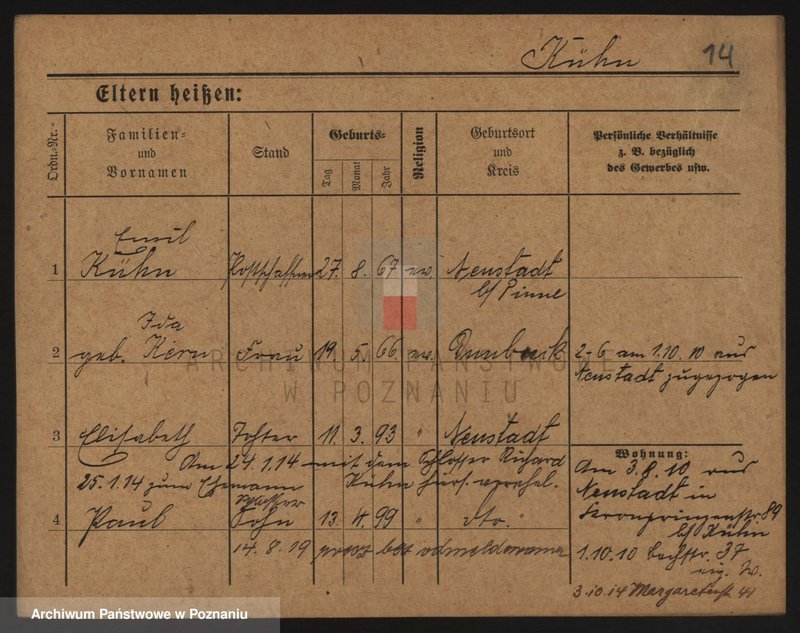 Kühn 14
Eltern heißen:
Ordn.-Nr.
Familien- und Vornamen
Stand
Geburts-
Tag
Monat
Jahr
Religion
Geburtsort und Kreis
Persönliche Verhältnisse
z. B. bezüglich
des Gewerbes usw.
Emil
1 Kühn Postschaffner 27. 8. 67 ev. Neustadt
b/ Pinne
Ida
2 geb. Kern Frau 19. 5. 66 ev. 2-6 am 1.10.10 aus
Neustadt zugezogen
3 Elisabeth Tochter 11. 3. 93 " Neustadt
Am 24.1.14 mit dem Schlosser Richard
25.1.14 zum Ehemann Kühn hier verehel.
4 Paul Sohn 13. 4. 99 " dto.
14.8.19 bez
Wohnung:
Am 3.8.10 aus
Neustadt in
Kronprinzenstr. 89
b/ Kühn
1.10.10 37
eig. W.
3.10.14 Margaretenstr. 41
ARCHIWUM PAŃSTWOWE
W POZNANIU
Archiwum Państwowe w Poznaniu